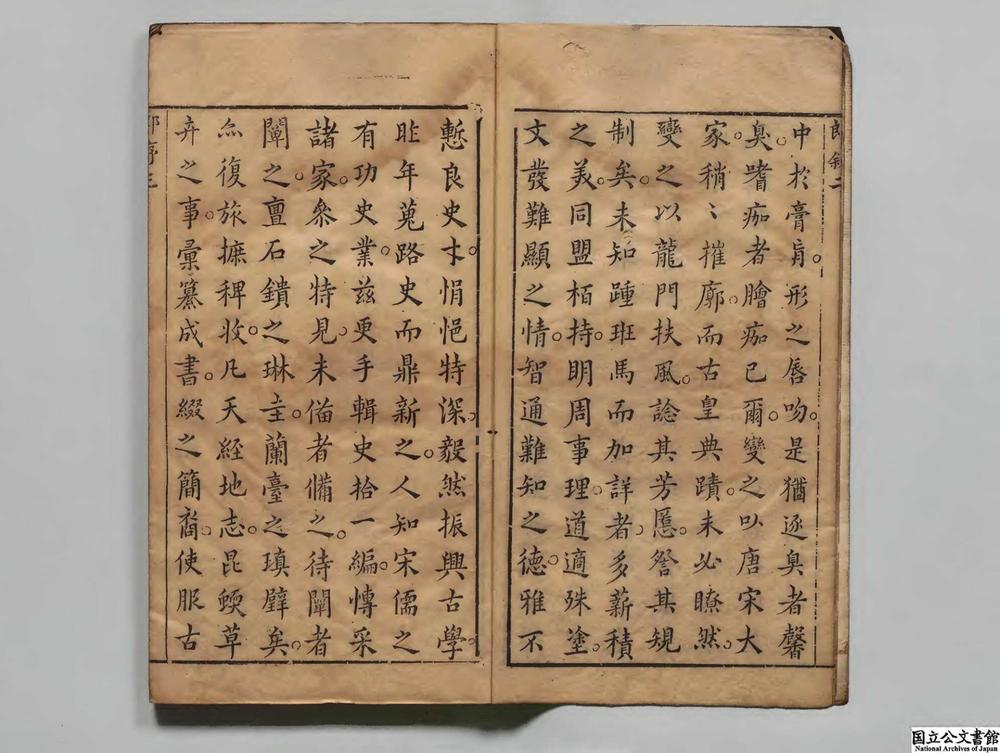 郎叙二
中於膏肓。形之唇吻。是猶逐臭者馨
臭。嗜痂者膾痂已爾。變之以唐宋大
家。稍〻摧廓。而古皇典蹟。未必瞭然。
變之以龍門扶風。諗其芳慝。詧其規
制矣。未知踵班馬而加詳者。多薪積
之美。同盟栢持。明周事理。道適殊塗。
文發難顯之情。智通難知之德。雅不
慙良史才。悁悒特深。毅然振興古學。
昨年蒐路史而鼎新之。人知宋儒之
有功史業。茲更手輯史拾一編。慱采
諸家。叅之特見。未僃者備之。待闡者
闡之。亶石鐀之琳圭。蘭臺之瑱璧矣。
亦復旅摭稗收。凡天經地志。昆蝡草
卉之事。彙纂成書。綴之簡裔。使服古
郎序三
国立公文書館
National Archives of Japan